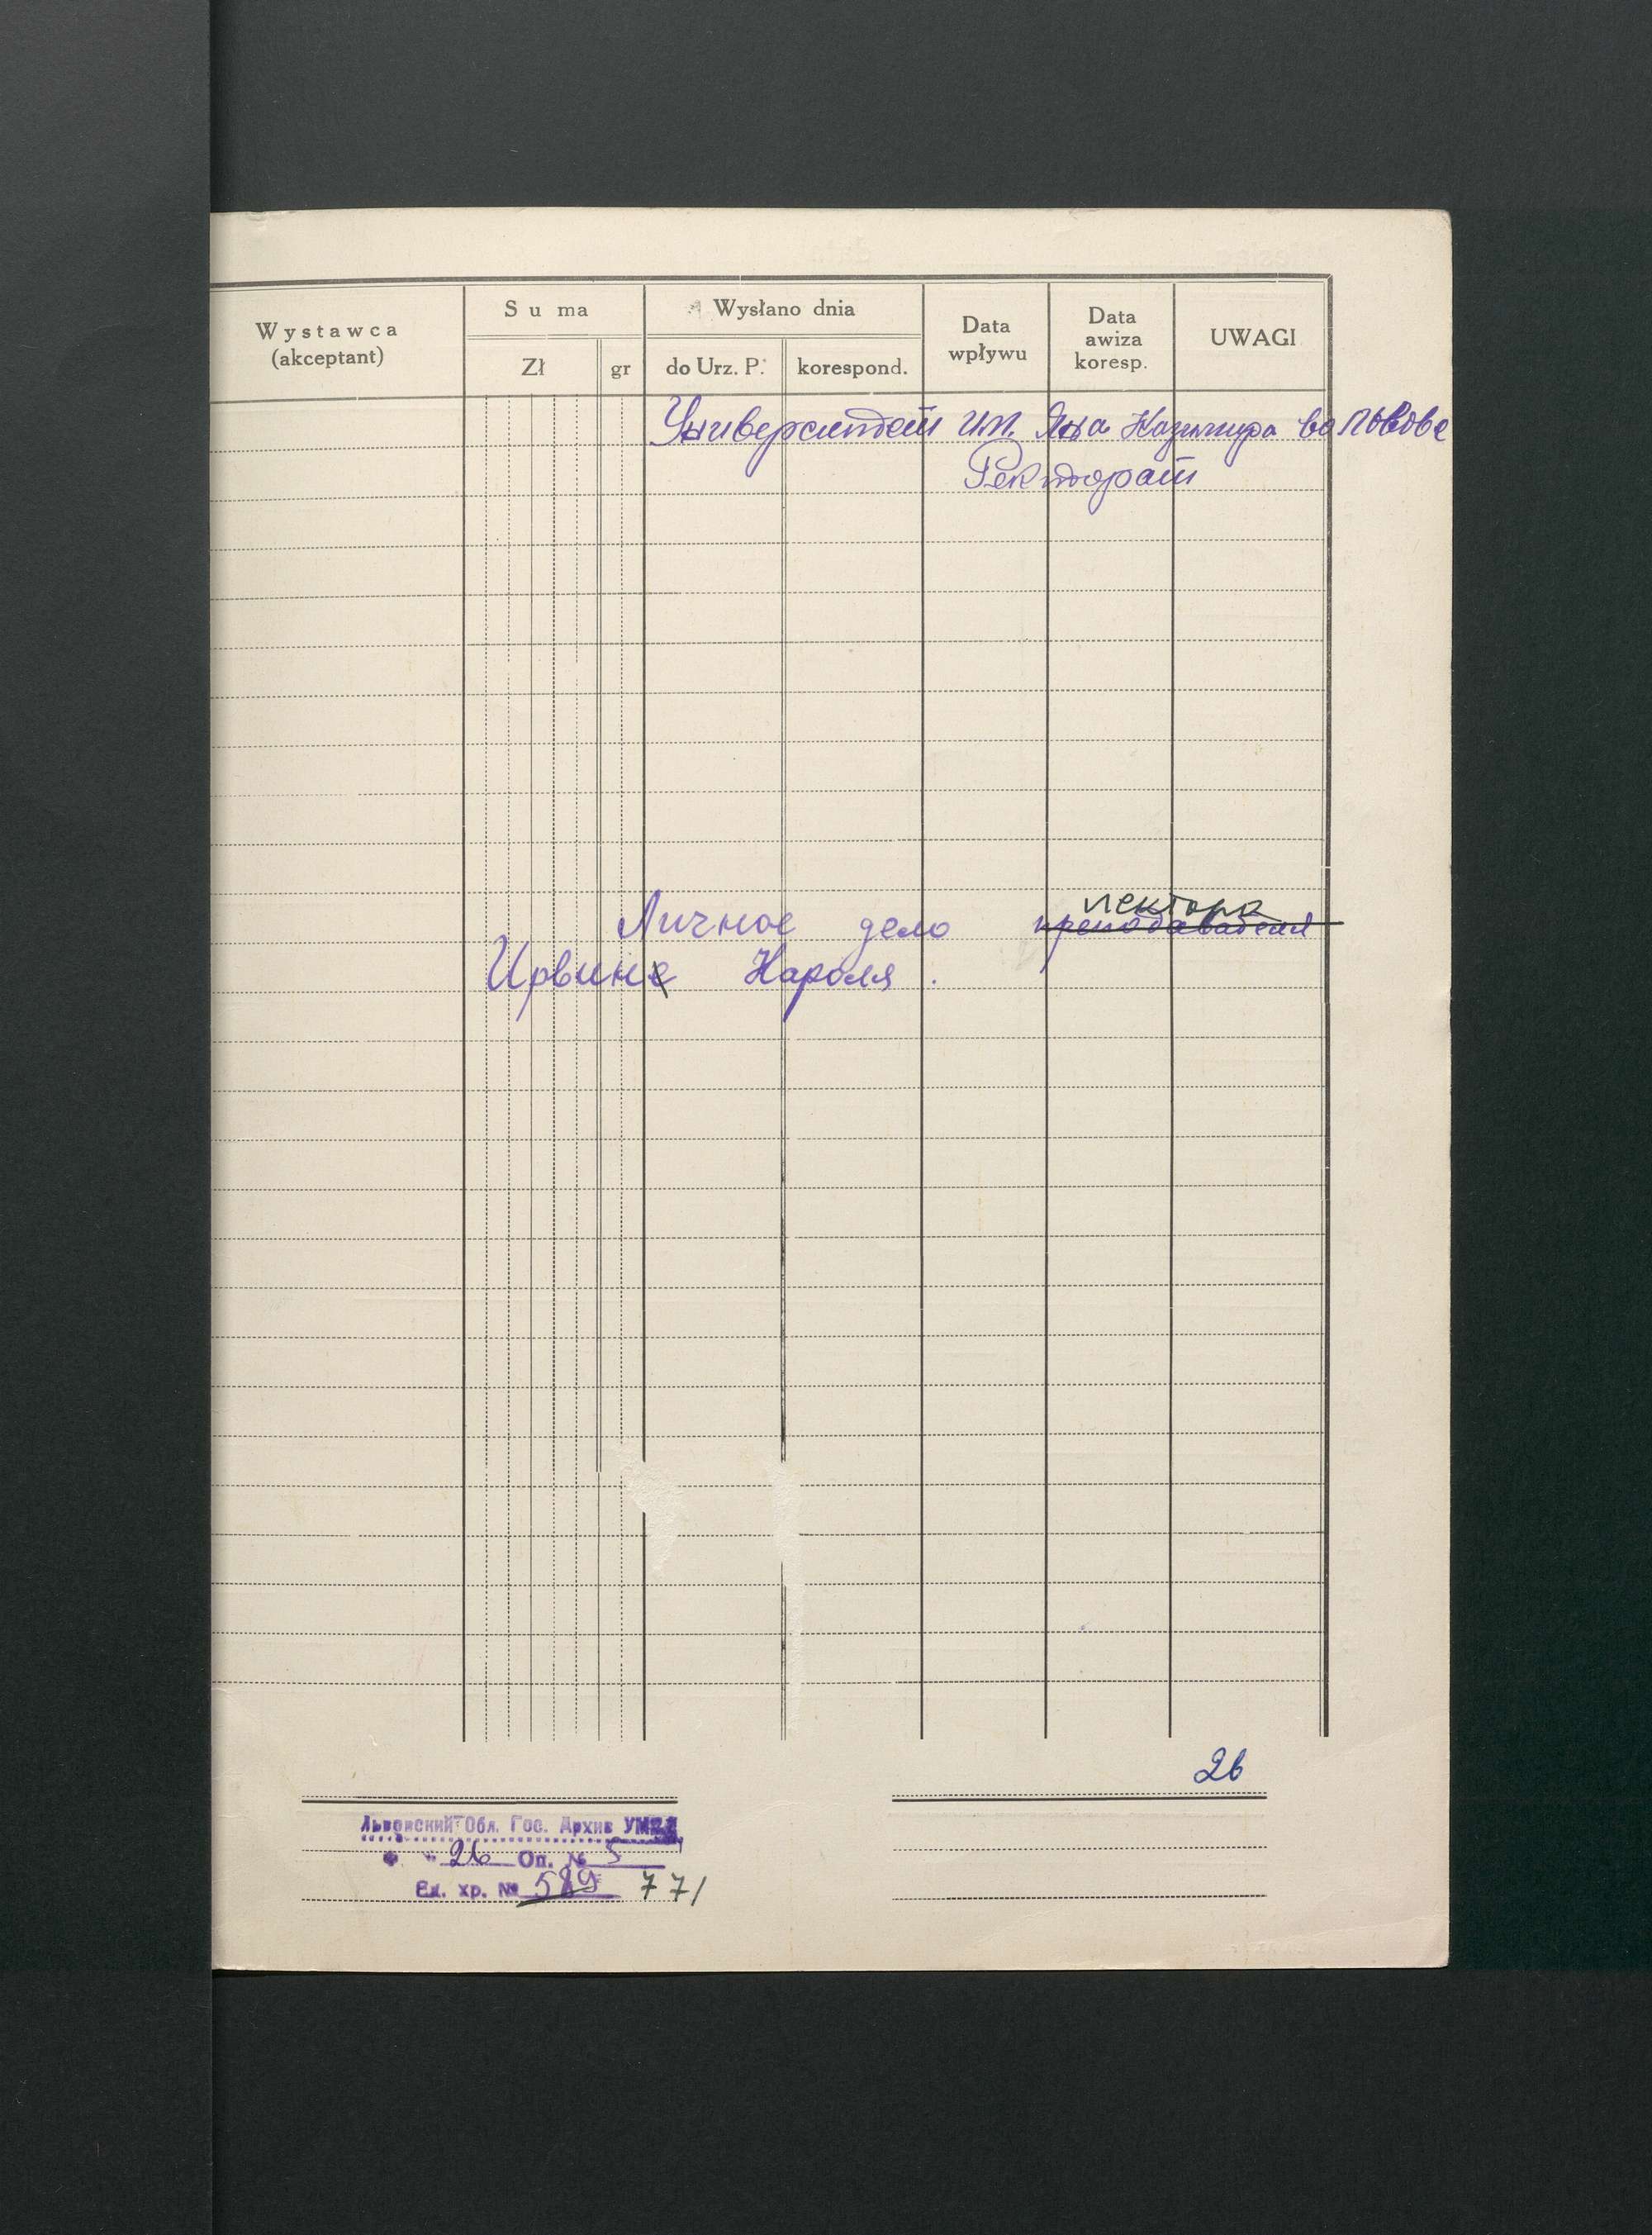 Wystawca
(akceptant)
Suma
Zł gr
Wysłano dnia
do Urz. P. korespond.
Data
wpływu
Data
awiza
koresp.
UWAGI
Университет им. Яна Казимира во Львове
Ректорат
лектора
Личное дело преподавателя
Ирвине Кароля.
26
Львовский Обл. Гос. Архив
26 Оп. № 5
Ед. хр. № 589 771